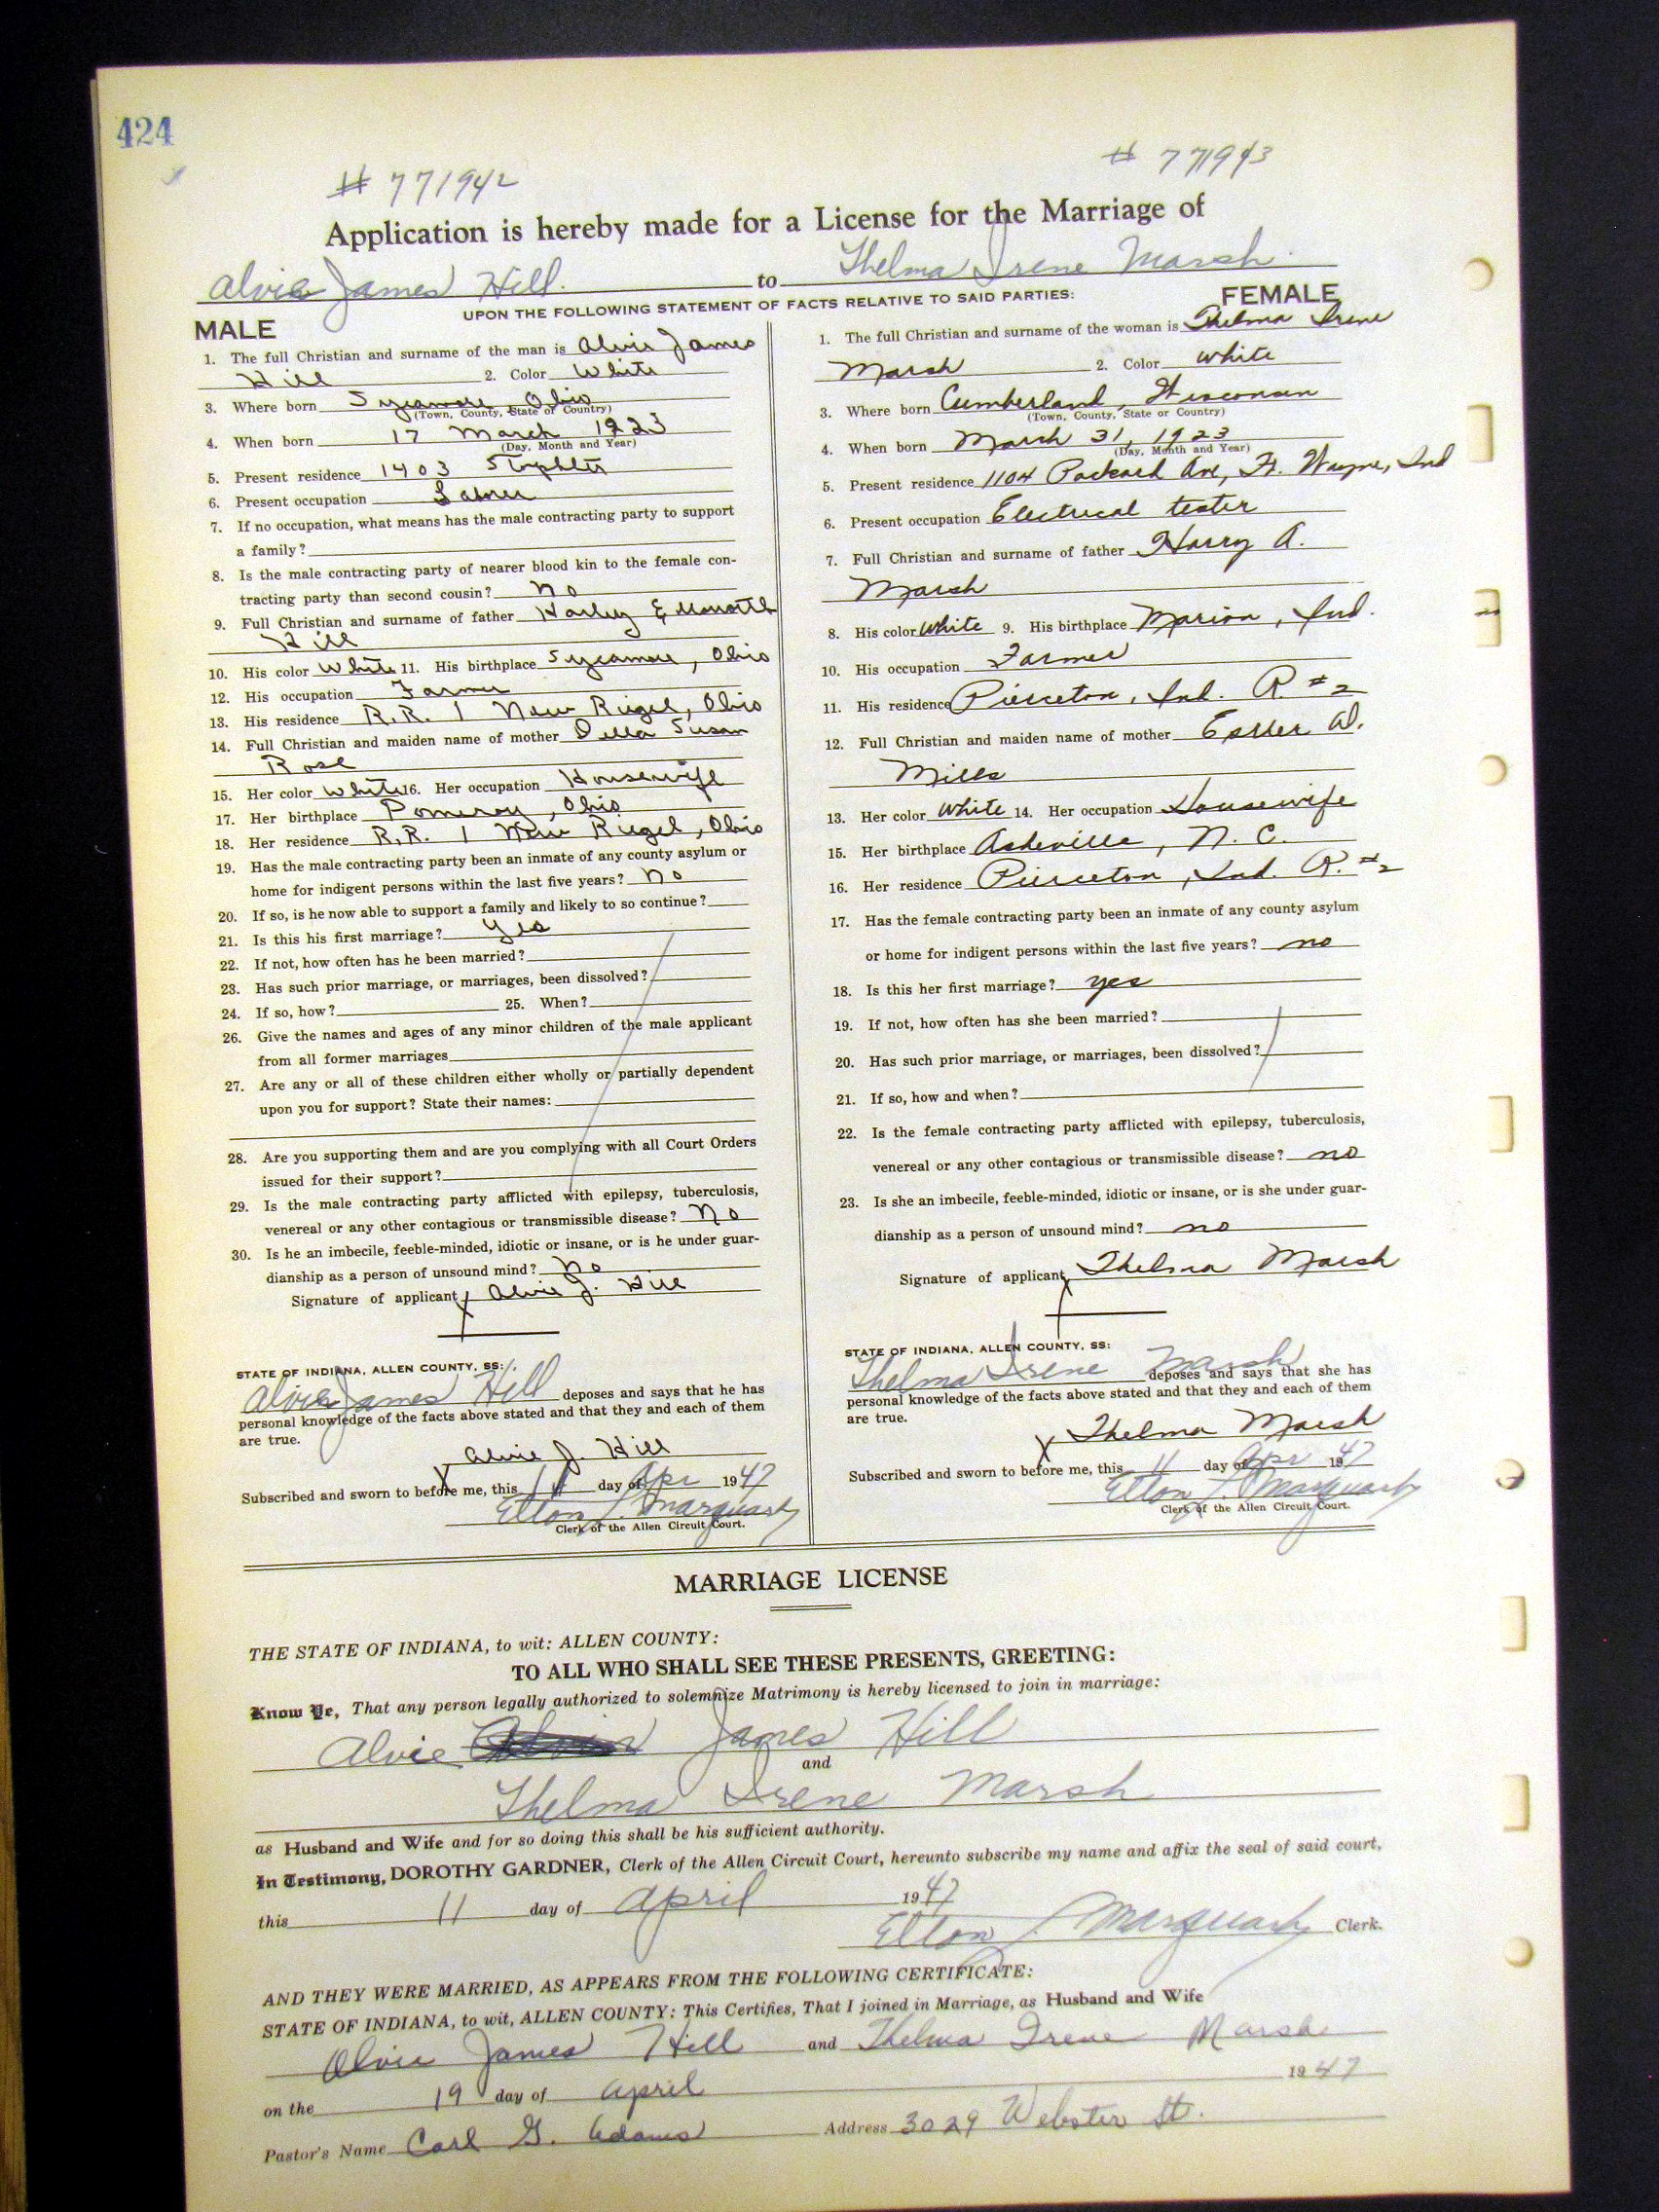 424
# 771942
# 771943
Application is hereby made for a License for the Marriage of
Alvie James Hill. to Thelma Irene Marsh.
UPON THE FOLLOWING STATEMENT OF FACTS RELATIVE TO SAID PARTIES:
MALE
1. The full Christian and surname of the man is Alvie James
Hill 2. Color White
3. Where born Sycamore, Ohio
(Town, County, State or Country)
4. When born 17 March 1923
(Day, Month and Year)
5. Present residence 1403
6. Present occupation Labor
7. If no occupation, what means has the male contracting party to support
a family?
8. Is the male contracting party of nearer blood kin to the female con-
tracting party than second cousin? no
9. Full Christian and surname of father Harley Ellsworth
Hill
10. His color White 11. His birthplace Sycamore, Ohio
12. His occupation Farmer
13. His residence R.R. 1 New Riegel, Ohio
14. Full Christian and maiden name of mother Della Susan
Rose
15. Her color White 16. Her occupation Housewife
17. Her birthplace Pomeroy, Ohio
18. Her residence R.R. 1 New Riegel, Ohio
19. Has the male contracting party been an inmate of any county asylum or
home for indigent persons within the last five years? no
20. If so, is he now able to support a family and likely to so continue?
21. Is this his first marriage? Yes
22. If not, how often has he been married?
23. Has such prior marriage, or marriages, been dissolved?
24. If so, how? 25. When?
26. Give the names and ages of any minor children of the male applicant
from all former marriages
27. Are any or all of these children either wholly or partially dependent
upon you for support? State their names:
28. Are you supporting them and are you complying with all Court Orders
issued for their support?
29. Is the male contracting party afflicted with epilepsy, tuberculosis,
venereal or any other contagious or transmissible disease? No
30. Is he an imbecile, feeble-minded, idiotic or insane, or is he under guar-
dianship as a person of unsound mind? No
Signature of applicant x Alvie J. Hill
STATE OF INDIANA, ALLEN COUNTY, SS:
Alvie James Hill deposes and says that he has
personal knowledge of the facts above stated and that they and each of them
are true.
x Alvie J. Hill
Subscribed and sworn to before me, this 11 day of Apr 1947
Elton L. Marquart
Clerk of the Allen Circuit Court.
FEMALE
1. The full Christian and surname of the woman is Thelma Irene
Marsh 2. Color white
3. Where born Cumberland, Wisconsin
(Town, County, State or Country)
4. When born March 31, 1923
(Day, Month and Year)
5. Present residence 1104 Packard Ave, Ft. Wayne, Ind
6. Present occupation Electrical tester
7. Full Christian and surname of father Harry A.
Marsh
8. His color White 9. His birthplace Marion, Ind.
10. His occupation Farmer
11. His residence Pierceton, Ind. R #2
12. Full Christian and maiden name of mother Esther W.
Mills
13. Her color White 14. Her occupation Housewife
15. Her birthplace Asheville, N. C.
16. Her residence Pierceton, Ind. R. #2
17. Has the female contracting party been an inmate of any county asylum
or home for indigent persons within the last five years? no
18. Is this her first marriage? yes
19. If not, how often has she been married?
20. Has such prior marriage, or marriages, been dissolved?
21. If so, how and when?
22. Is the female contracting party afflicted with epilepsy, tuberculosis,
venereal or any other contagious or transmissible disease? no
23. Is she an imbecile, feeble-minded, idiotic or insane, or is she under guar-
dianship as a person of unsound mind? no
Signature of applicant x Thelma Marsh
STATE OF INDIANA, ALLEN COUNTY, SS:
Thelma Irene Marsh deposes and says that she has
personal knowledge of the facts above stated and that they and each of them
are true.
x Thelma Marsh
Subscribed and sworn to before me, this 11 day of Apr 1947
Elton L. Marquart
Clerk of the Allen Circuit Court.
MARRIAGE LICENSE
THE STATE OF INDIANA, to wit: ALLEN COUNTY:
TO ALL WHO SHALL SEE THESE PRESENTS, GREETING:
Know Ye, That any person legally authorized to solemnize Matrimony is hereby licensed to join in marriage:
Alvie James Hill
and
Thelma Irene Marsh
as Husband and Wife and for so doing this shall be his sufficient authority.
In Testimony, DOROTHY GARDNER, Clerk of the Allen Circuit Court, hereunto subscribe my name and affix the seal of said court,
this 11 day of April 1947
Elton L. Marquart Clerk.
AND THEY WERE MARRIED, AS APPEARS FROM THE FOLLOWING CERTIFICATE:
STATE OF INDIANA, to wit, ALLEN COUNTY: This Certifies, That I joined in Marriage, as Husband and Wife
Alvie James Hill and Thelma Irene Marsh
on the 19 day of April 1947
Pastor's Name Carl G. Adams Address 3029 Webster St.